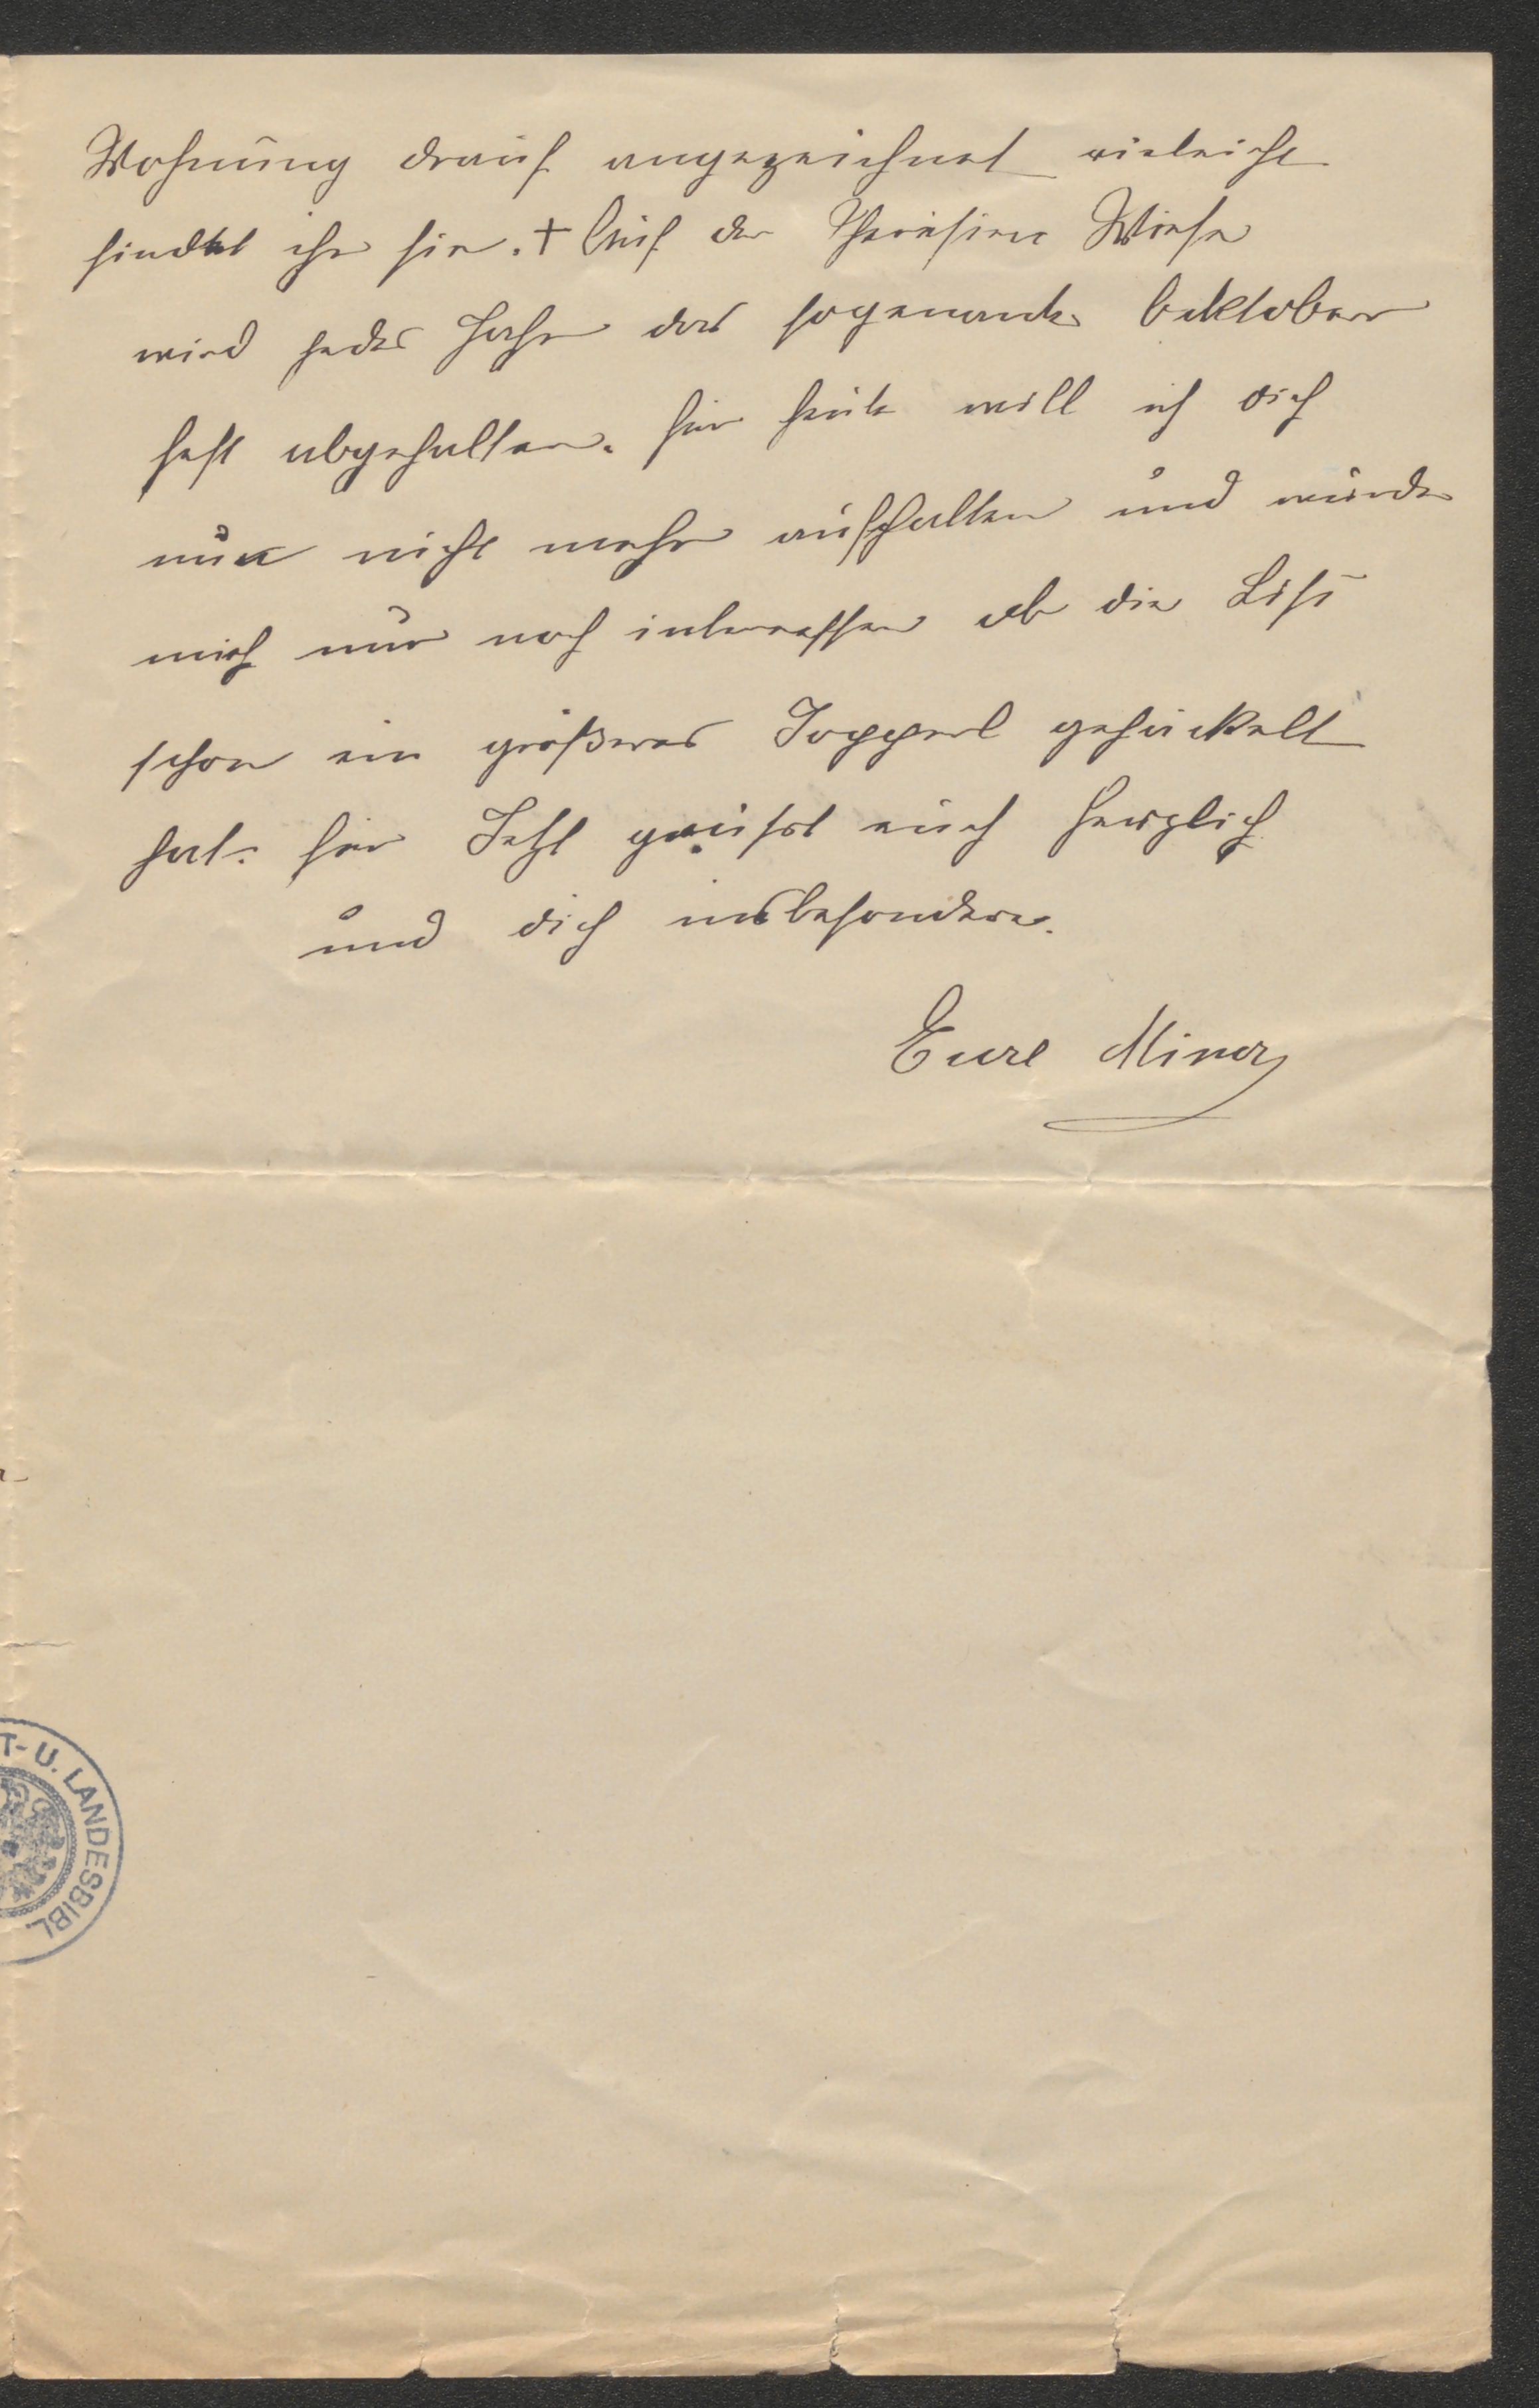 Wohnung drauf angezeichnet vieleicht
findet ihr sie. + Auf der Theresien Wiese
wird jedes Jahr das sogenante Ocktober
fest abgehalten. für heute will ich dich
nun nicht mehr aufhalten und würde
mich nur noch interessen ob die Lisi
schon ein größeres Jopperl gehäckelt
hat. für Jetzt grüsst euch herzlich
und dich insbesondere.
Eure Mina
T- U. LANDESBIBL.